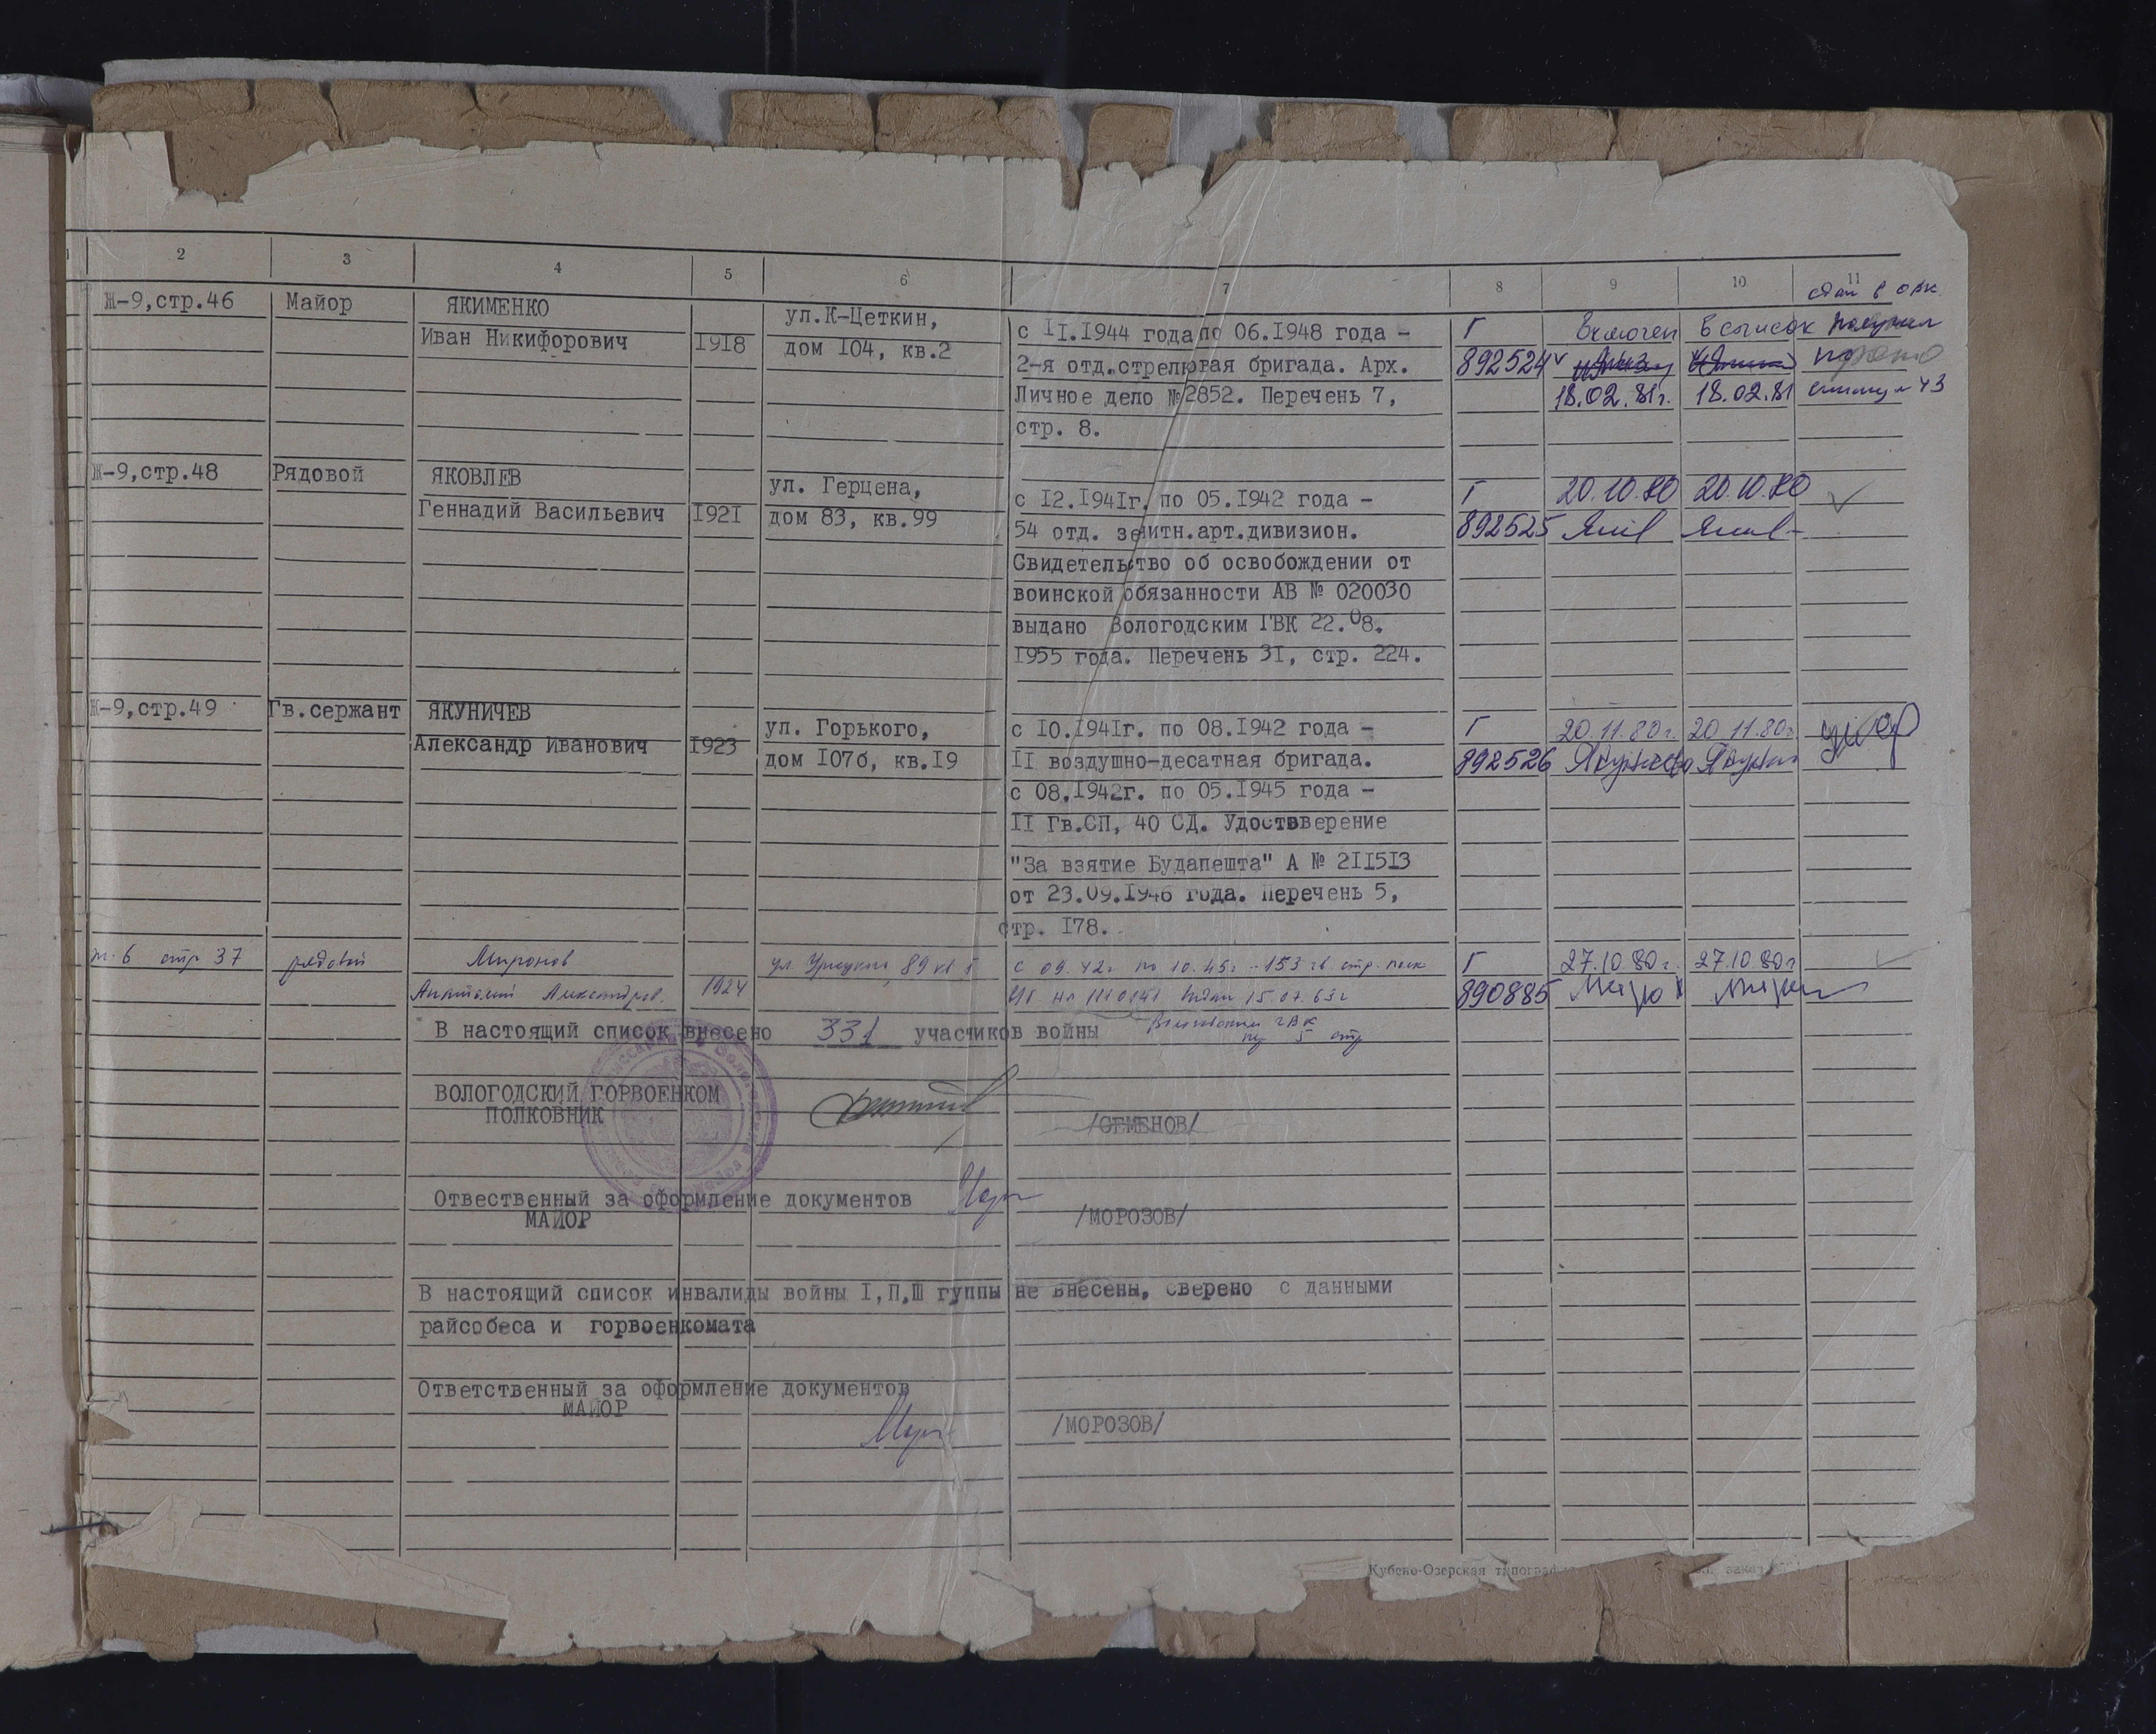 2 3 4 5 6 7 8 9 10 11
Ж-9,стр.46 Майор ЯКИМЕНКО
Иван Никифорович 1918
ул.К-Цеткин,
дом 104, кв.2
с II.1944 года по 06.1948 года -
2-я отд.стрелковая бригада. Арх.
Личное дело №2852. Перечень 7,
стр. 8.
Г
892524
Включен в список
18.02.81г. 18.02.81
Ж-9,стр.48 Рядовой ЯКОВЛЕВ
Геннадий Васильевич 1921
ул. Герцена,
дом 83, кв.99
с 12.1941г. по 05.1942 года -
54 отд. зенитн.арт.дивизион.
Свидетельство об освобождении от
воинской обязанности АВ № 020030
выдано Вологодским ГВК 22.08.
1955 года. Перечень 31, стр. 224.
Г 20.10.80 20.10.80
892525
Ж-9,стр.49 Гв.сержант ЯКУНИЧЕВ
Александр Иванович 1923
ул. Горького,
дом 107б, кв.19
с 10.1941г. по 08.1942 года -
II воздушно-десатная бригада.
с 08.1942г. по 05.1945 года -
II Гв.СП, 40 СД. Удоствверение
"За взятие Будапешта" А № 211513
от 23.09.1946 года. Перечень 5,
стр. 178.
Г 20.11.80г. 20.11.80г
892526
стр 37 рядовой Миронов
Анатолий Александров. 1924
ул. Урицкого, 89 кв
с 09.42г по 10.45г - 153 гв. стр. полк
15.07.63г
Г 27.10.80г. 27.10.80г
890885
В настоящий список внесено 331 участников войны
ВОЛОГОДСКИЙ ГОРВОЕНКОМ
ПОЛКОВНИК /СЕМЕНОВ/
Отвественный за оформление документов
МАЙОР /МОРОЗОВ/
В настоящий список инвалиды войны I,П,Ш гуппы не внесены, сверено с данными
райсобеса и горвоенкомата
Ответственный за оформление документов
МАЙОР /МОРОЗОВ/
Кубено-Озерская типограф заказ